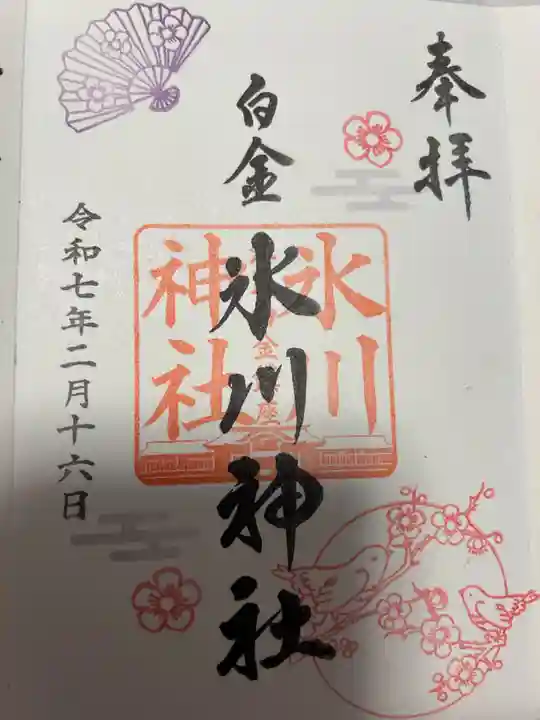 奉拝
白金
氷川神社
氷川
神社
令和七年二月十六日